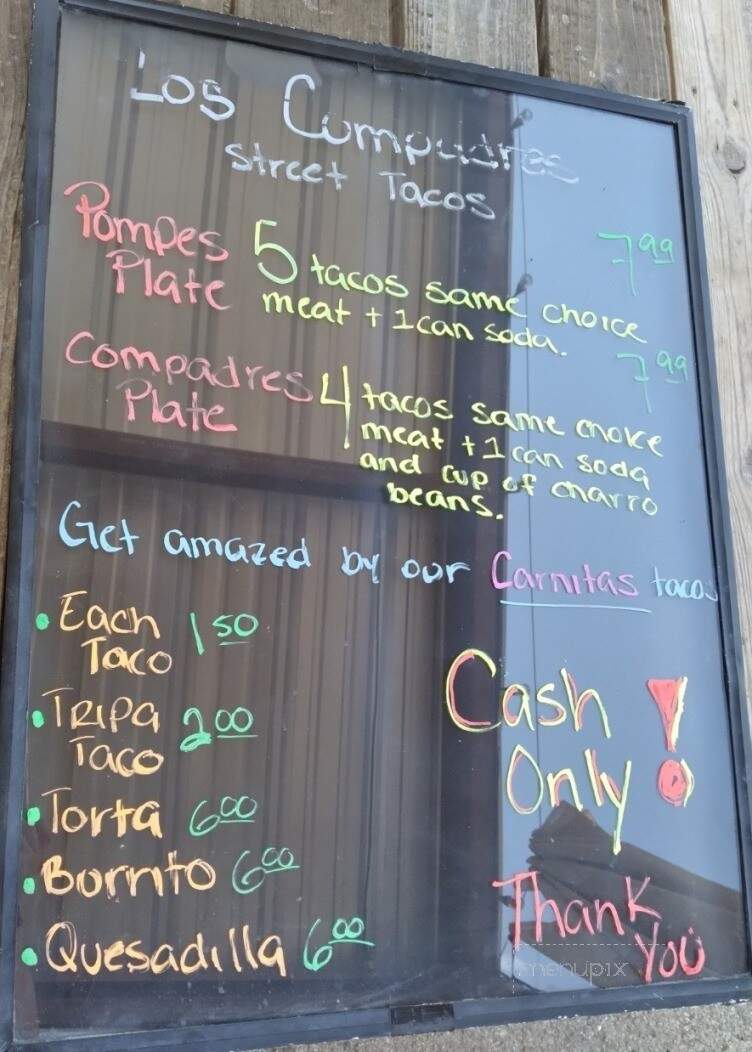 Los Compadres
Street Tacos
Pompes
Plate
5 tacos same choice
meat + 1 can soda.
7.99
Compadres
Plate
4 tacos same choice
meat + 1 can soda
and cup of charro
beans.
7.99
Get amazed by our Carnitas tacos
• Each
Taco
1 50
• TRIPA
Taco
2 00
• Torta 6 00
• Burrito 6 00
• Quesadilla 6 00
Cash
Only!
Thank
You
menupix